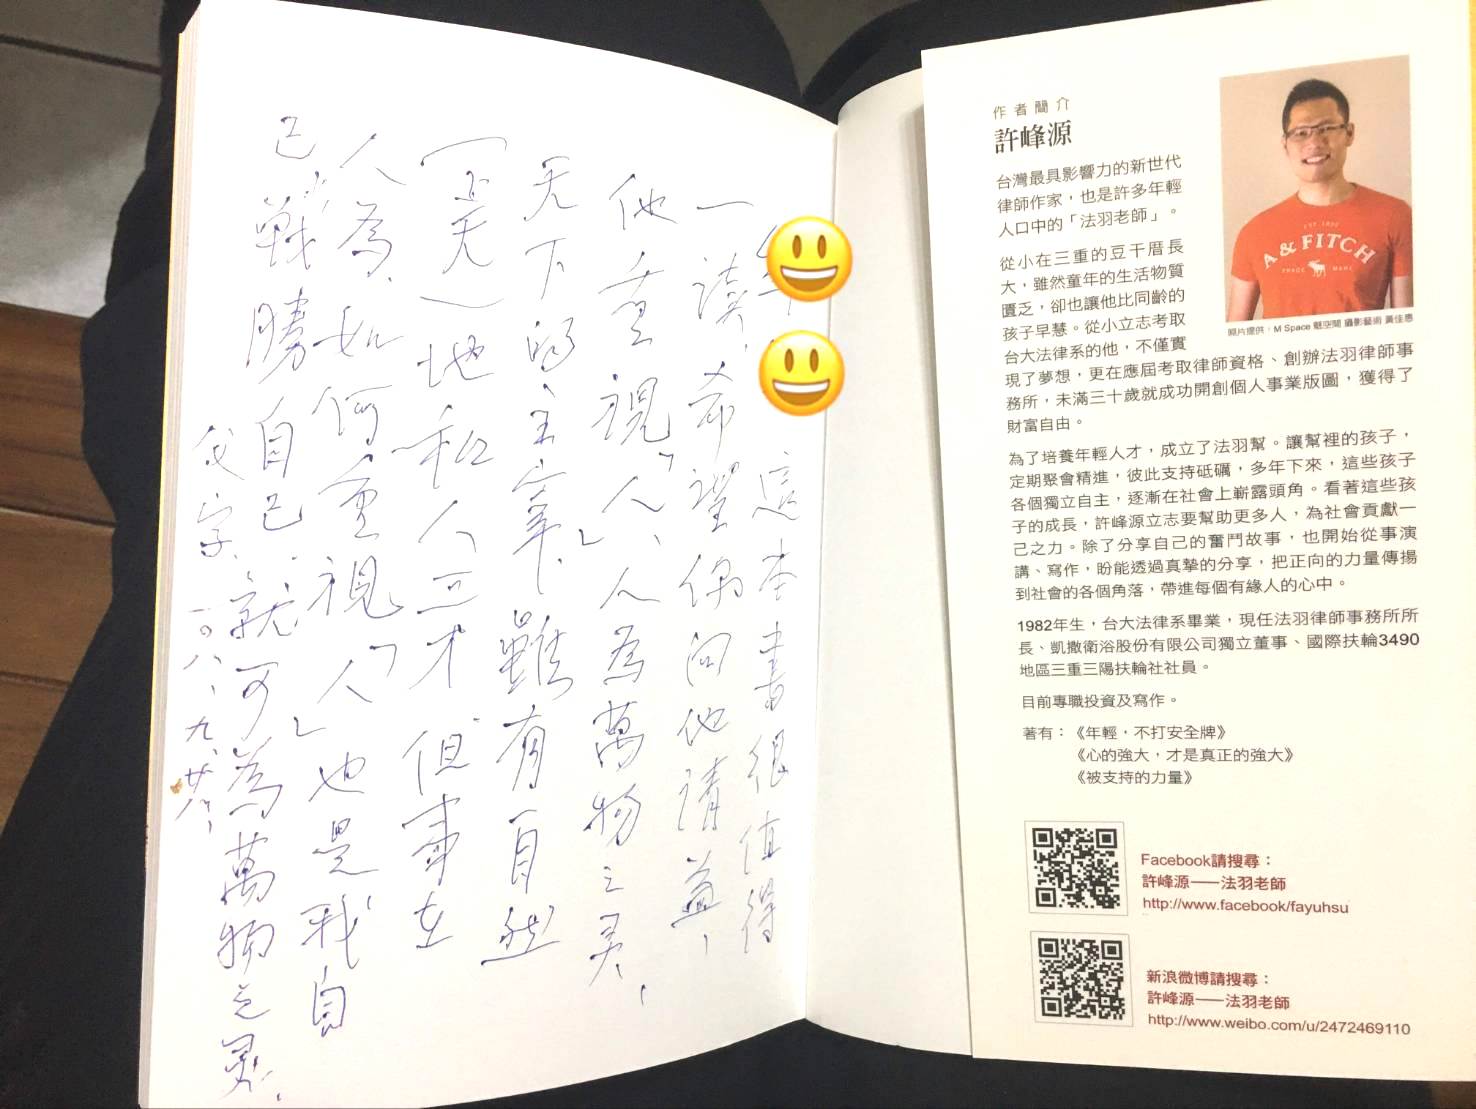 這本書很值得
一讀、希望你向他請益、
他重視「人」、人為萬物之灵、
天下的主宰、雖有自然
(天)地和人三才、但事在
人為、如何重視「人」也是我自
己、戰勝自己、就可為萬物之灵、
父字、一〇八、九、廿八、
作者簡介
許峰源
台灣最具影響力的新世代
律師作家，也是許多年輕
人口中的「法羽老師」。
從小在三重的豆干厝長
大，雖然童年的生活物質
匱乏，卻也讓他比同齡的
孩子早慧。從小立志考取
台大法律系的他，不僅實
現了夢想，更在應屆考取律師資格、創辦法羽律師事
務所，未滿三十歲就成功開創個人事業版圖，獲得了
財富自由。
為了培養年輕人才，成立了法羽幫。讓幫裡的孩子，
定期聚會精進，彼此支持砥礪，多年下來，這些孩子
各個獨立自主，逐漸在社會上嶄露頭角。看著這些孩
子的成長，許峰源立志要幫助更多人，為社會貢獻一
己之力。除了分享自己的奮鬥故事，也開始從事演
講、寫作，盼能透過真摯的分享，把正向的力量傳揚
到社會的各個角落，帶進每個有緣人的心中。
1982年生，台大法律系畢業，現任法羽律師事務所所
長、凱撒衛浴股份有限公司獨立董事、國際扶輪3490
地區三重三陽扶輪社社員。
目前專職投資及寫作。
著有：《年輕，不打安全牌》
《心的強大，才是真正的強大》
《被支持的力量》
EST. 1892
A & FITCH
TRADE MARK
照片提供：M Space 魅空間 攝影藝術 黃佳惠
Facebook請搜尋：
許峰源——法羽老師
http://www.facebook/fayuhsu
新浪微博請搜尋：
許峰源——法羽老師
http://www.weibo.com/u/2472469110